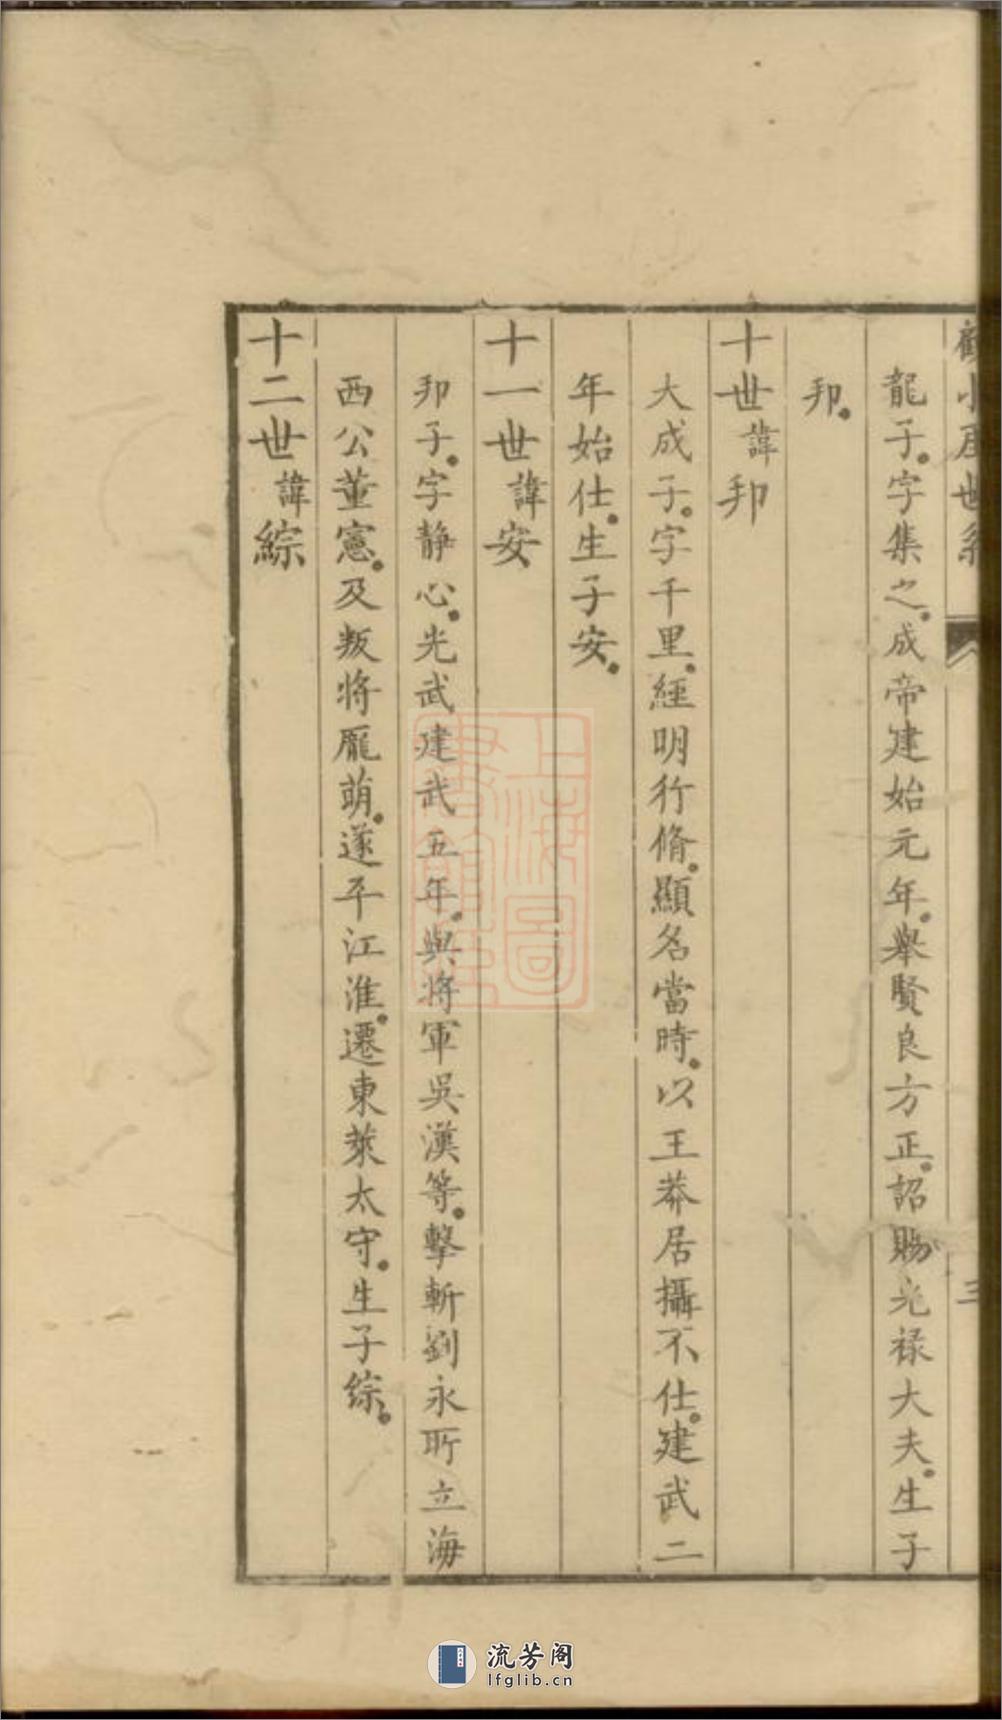 龍子字集之成帝建始元年舉賢良方正詔賜光祿大夫生子
邦
十世諱邦
大成子字千里經明行脩顯名當時以王莽居攝不仕建武二
年始仕生子安
十一世諱安
邦子字靜心光武建武五年與將軍吳漢等擊斬劉永所立海
西公董憲及叛將龐萌遂平江淮遷東萊太守生子綜
十二世諱綜
三
上海圖書館藏
流芳阁
lfglib.cn